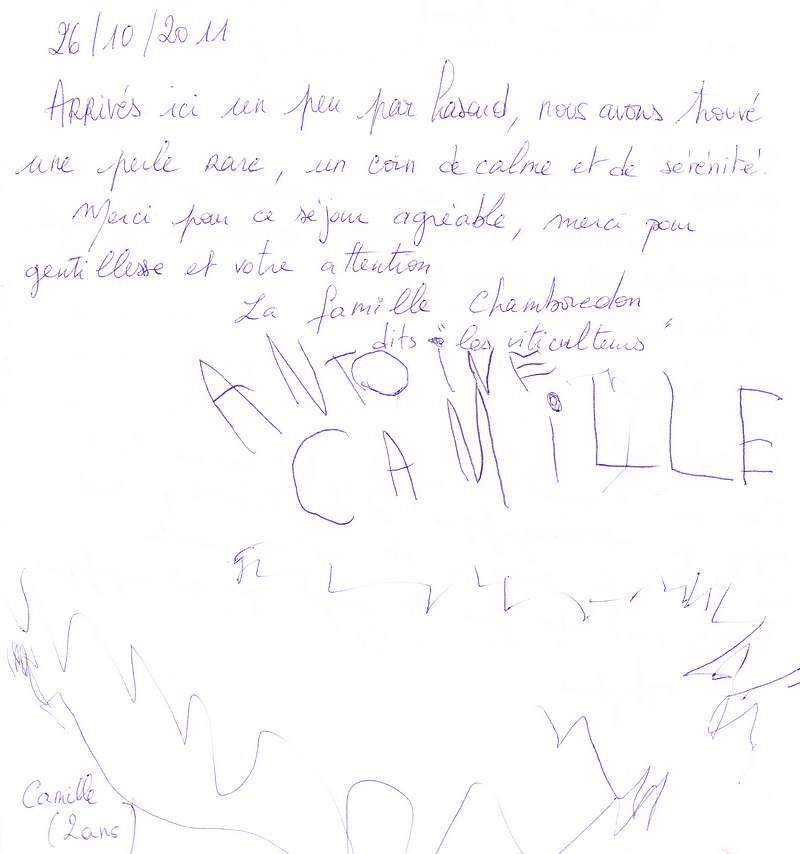 26/10/2011
ARRIVÉS ici un peu par hasard, nous avons trouvé
une perle rare, un coin de calme et de sérénité.
Merci pour ce séjour agréable, merci pour
gentillesse et votre attention
La famille Chamboredon
dits "les viticulteurs"
ANTOINE
CAMiLLE
Camille
(2ans)